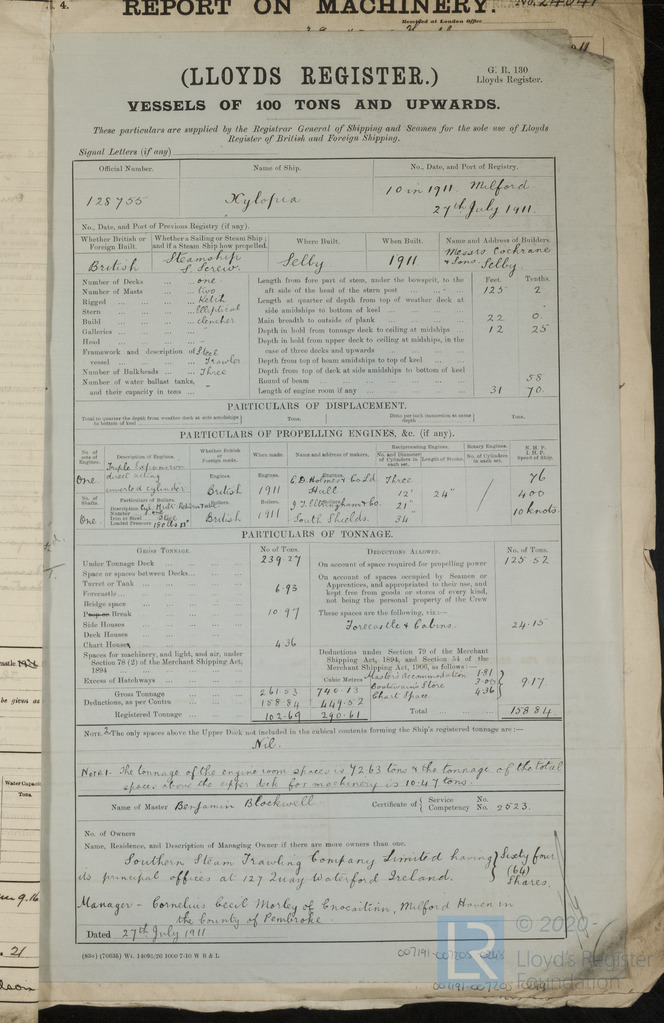 4.
REPORT ON MACHINERY.
No. 24041
Received at London Office
(LLOYDS REGISTER.)
G. R. 130
Lloyds Register.
VESSELS OF 100 TONS AND UPWARDS.
These particulars are supplied by the Registrar General of Shipping and Seamen for the sole use of Lloyds
Register of British and Foreign Shipping.
Signal Letters (if any)
Official Number. Name of Ship. No., Date, and Port of Registry.
128755 Xylopia 10 in 1911 Milford
27th July 1911.
No., Date, and Port of Previous Registry (if any).
Whether British or Foreign Built. Whether a Sailing or Steam Ship; and if a Steam Ship how propelled. Where Built. When Built. Name and Address of Builders.
British Steamship S. Screw. Selby 1911 Messrs Cochrane & Sons. Selby.
Number of Decks ... one
Number of Masts ... two
Rigged ... Ketch
Stern ... Elliptical
Build ... clencher
Galleries ... "
Head ... "
Framework and description of vessel ... Steel Trawler
Number of Bulkheads ... Three
Number of water ballast tanks, and their capacity in tons ... "
Feet. Tenths.
Length from fore part of stem, under the bowsprit, to the aft side of the head of the stern post ... 125 2
Length at quarter of depth from top of weather deck at side amidships to bottom of keel ...
Main breadth to outside of plank ... 22 0.
Depth in hold from tonnage deck to ceiling at midships ... 12 25
Depth in hold from upper deck to ceiling at midships, in the case of three decks and upwards
Depth from top of beam amidships to top of keel ...
Depth from top of deck at side amidships to bottom of keel
Round of beam ... 58
Length of engine room if any ... 31 70.
PARTICULARS OF DISPLACEMENT.
Total to quarter the depth from weather deck at side amidships to bottom of keel Tons. Ditto per inch immersion at same depth Tons.
PARTICULARS OF PROPELLING ENGINES, &c. (if any).
No. of sets of Engines. Description of Engines. Whether British or Foreign made. When made. Name and address of makers. Reciprocating Engines. No. and Diameter of Cylinders in each set. Length of Stroke. Rotary Engines. No. of Cylinders in each set. N.H.P. I.H.P. Speed of Ship.
One Triple Expansion direct acting inverted cylinder Engines. British Engines. 1911 Engines. C. D. Holmes & Co Ld Hull Three 12" 24" 76
400
No. of Shafts. Particulars of Boilers.
One Description Cyl. Mult.
Number one
Iron or Steel Steel
Loaded Pressure 180 lbs
Boilers. British Boilers. 1911 Boilers. J. T. Eltringham & Co. South Shields. 21" 34 10 knots.
PARTICULARS OF TONNAGE.
GROSS TONNAGE. No of Tons. DEDUCTIONS ALLOWED. No. of Tons.
Under Tonnage Deck ... 239.27
Space or spaces between Decks...
Turret or Tank ...
Forecastle ... 6.93
Bridge space
Poop or Break ... 10.97
Side Houses
Deck Houses
Chart House ... 4.36
Spaces for machinery, and light, and air, under Section 78 (2) of the Merchant Shipping Act, 1894
Excess of Hatchways ...
Gross Tonnage ... 261.53 740.13
Deductions, as per Contra ... 158.84 449.52
Registered Tonnage ... 102.69 290.61
On account of space required for propelling power 125.52
On account of spaces occupied by Seamen or Apprentices, and appropriated to their use, and kept free from goods or stores of every kind, not being the personal property of the Crew
These spaces are the following, viz:—
Forecastle & Cabins. 24.15
Deductions under Section 79 of the Merchant Shipping Act, 1894, and Section 54 of the Merchant Shipping Act, 1906, as follows:—
Cubic Metres
Master's accommodation 1.81
Boatswain's Store 3.00
Chart Space 4.36
9.17
Total ... 158.84
NOTE 2 The only spaces above the Upper Deck not included in the cubical contents forming the Ship's registered tonnage are:—
Nil.
Note 1. The tonnage of the engine room spaces is 42.63 tons & the tonnage of the total
spaces above the upper deck for machinery is 10.47 tons.
Name of Master Benjamin Blockwell Certificate of Service No. Competency No. 2523.
No. of Owners
Name, Residence, and Description of Managing Owner if there are more owners than one.
Southern Steam Trawling Company Limited having
its principal offices at 127 Quay Waterford Ireland.
Sixty four (64) Shares.
Manager - Cornelius Cecil Morley of Milford Haven in
the County of Pembroke.
Dated 27th July 1911
(83c) (70635) Wt. 14091/26 1000 7-10 W B & L
007191-007205-0248
© 2020
LR
Lloyd's Register
Foundation
be given as
Water Capacity
Tons.